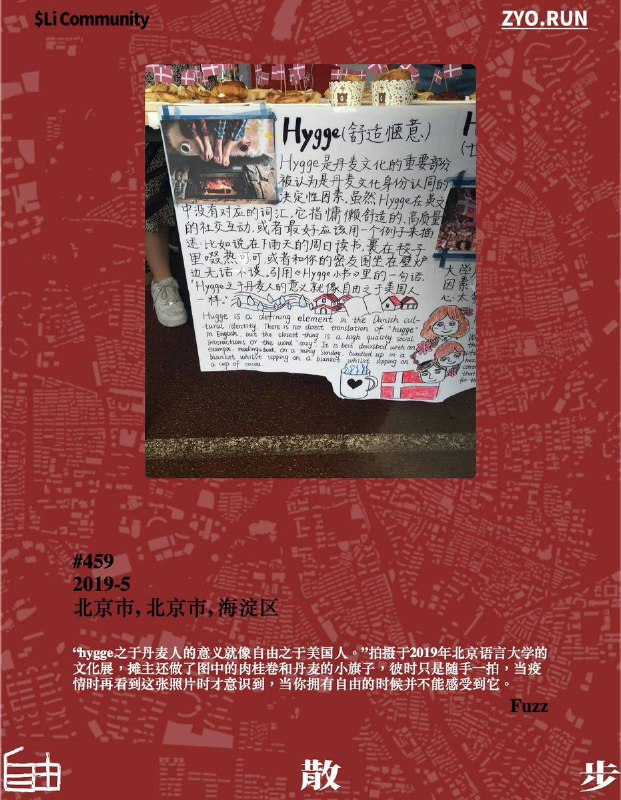 $Li Community
ZYO.RUN
Hygge(舒适惬意)
Hygge是丹麦文化的重要部分
被认为是丹麦文化身份认同的
决定性因素.虽然Hygge在英文
中没有对应的词汇,它指慵懒舒适的、高质量
的社交互动,或者最好应该用一个例子来描
述.比如说在下雨天的周日读书,裹在毯子
里啜热可可,或者和你的密友围坐在壁炉
边无话不谈.引用《Hygge小书》里的一句话:
"Hygge之于丹麦人的意义就像自由之于美国人
一样."
Hygge is a defining element in the Danish cul-
tural identity. There is no direct translation of "hygge"
in English, but the closest thing is a high quality social
interactions or the word "cosy". It is best described with an
example: reading a book on a rainy sunday, bundled up in a
blanket whilst sipping on a blanket whilst sipping on
a cup of cocoa
大学
因素
心太
#459
2019-5
北京市, 北京市, 海淀区
“hygge之于丹麦人的意义就像自由之于美国人。”拍摄于2019年北京语言大学的
文化展，摊主还做了图中的肉桂卷和丹麦的小旗子，彼时只是随手一拍，当疫
情时再看到这张照片时才意识到，当你拥有自由的时候并不能感受到它。
Fuzz
自由
散
步